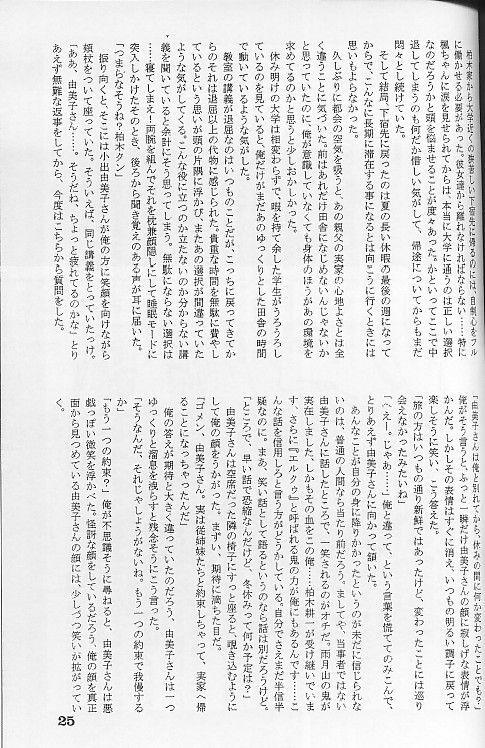 柏木家から大学近くの狭苦しい下宿先に帰るのには、自制心をフル
に働かせる必要があった。彼女達から離れなければならない……特に
楓ちゃんに涙を見せられてからは、本当に大学に通うのは正しい選択
なのだろうかと頭を悩ませることが度々あった。かといってここで中
退してしまうのも何だか惜しい気がして、帰途についてからもまだ
悶々とし続けていた。
そして結局、下宿先に戻ったのは夏の長い休暇の最後の週になって
からで、こんなに長期に滞在する事になるとは向こうに行くときには
思いもよらなかった。
久しぶりに都会の空気を吸うと、あの親父の実家の心地よさとは全
く違うことに気づいた。前はあれだけ田舎になじめないんじゃないか
と思っていたのに、俺が意識していなくても身体のほうがあの環境を
求めてるのかと思うと少しおかしかった。
休み明けの大学は相変わらずで、暇を持て余した学生がうろうろし
ているのを見ていると、俺だけがまだあのゆっくりとした田舎の時間
で動いているような気がした。
教室の講義が退屈なのはいつものことだが、こっちに戻ってきてか
らのそれは退屈以上の代物に感じられた。貴重な時間を無駄に費やし
ているという思いが頭の片隅に浮かび、またあの選択が間違っていた
ような気がしてくる。こんな役に立つのか立たないのか分からない講
義を聞いていると余計にそう思ってしまう。無駄にならない選択は
……寝てしまえ!両腕を組んでそれを枕兼顔隠しにして睡眠モードに
突入しかけたそのとき、後ろから聞き覚えのある声が耳に届いた。
「つまらなそうね?柏木クン」
振り向くと、そこには小出由美子さんが俺の方に笑顔を向けながら
頬杖をついて座っていた。そういえば、同じ講義をとっていたっけ。
「ああ、由美子さん……。そうだね、ちょっと疲れてるのかな」とり
あえず無難な返事をしてから、今度はこちらから質問をした。
「由美子さんは俺と別れてから、休みの間に何か変わったことでも?」
俺がそう言うと、ふっと一瞬だけ由美子さんの顔に寂しげな表情が浮
かんだ。しかしその表情はすぐに消え、いつもの明るい調子に戻って
楽しそうに笑い、こう答えた。
「旅の方はいつもの通り新鮮ではあったけど、変わったことには巡り
会えなかったみたいね」
「へぇー。じゃあ……」俺と違って、という言葉を慌ててのみこんで、
とりあえず由美子さんに向かって頷いた。
あんなことが自分の身に降りかかったというのが未だに信じられな
いのは、普通の人間なら当たり前だろう。ましてや、当事者ではない
由美子さんに話したところで、一笑されるのがオチだ。『雨月山の鬼が
実在しました。しかもその血をこの俺……柏木耕一が受け継いでいま
す、さらに『エルクゥ』と呼ばれる鬼の力が俺にもあるんです……』
んな話を信用しろと言う方がどうかしている。自分でさえまだ半信半
疑なのに。まあ、笑い話として語るというのなら話は別だろうけど。
「ところで、早い話で恐縮なんだけど、冬休みって何か予定は?」
由美子さんは空席だった隣の椅子にすっと座ると、覗き込むように
して俺の顔をうかがった。まずい、期待に満ちた目だ。
「ゴメン、由美子さん。実は従姉妹たちと約束しちゃって、実家へ帰
ることになっちゃってるんだ」
俺の答えが期待と大きく違っていたのだろう、由美子さんは一つ
ゆっくりと溜息を洩らすと残念そうにこう言った。
「そうなんだ、それじゃしょうがないね。もう一つの約束で我慢する
か」
「もう一つの約束?」俺が不思議そうに尋ねると、由美子さんは悪
戯っぽい微笑を浮かべた。怪訝な顔をしているだろう、俺の顔を真正
面から見つめている由美子さんの顔には、少しづつ笑いが拡がってい
く。
25